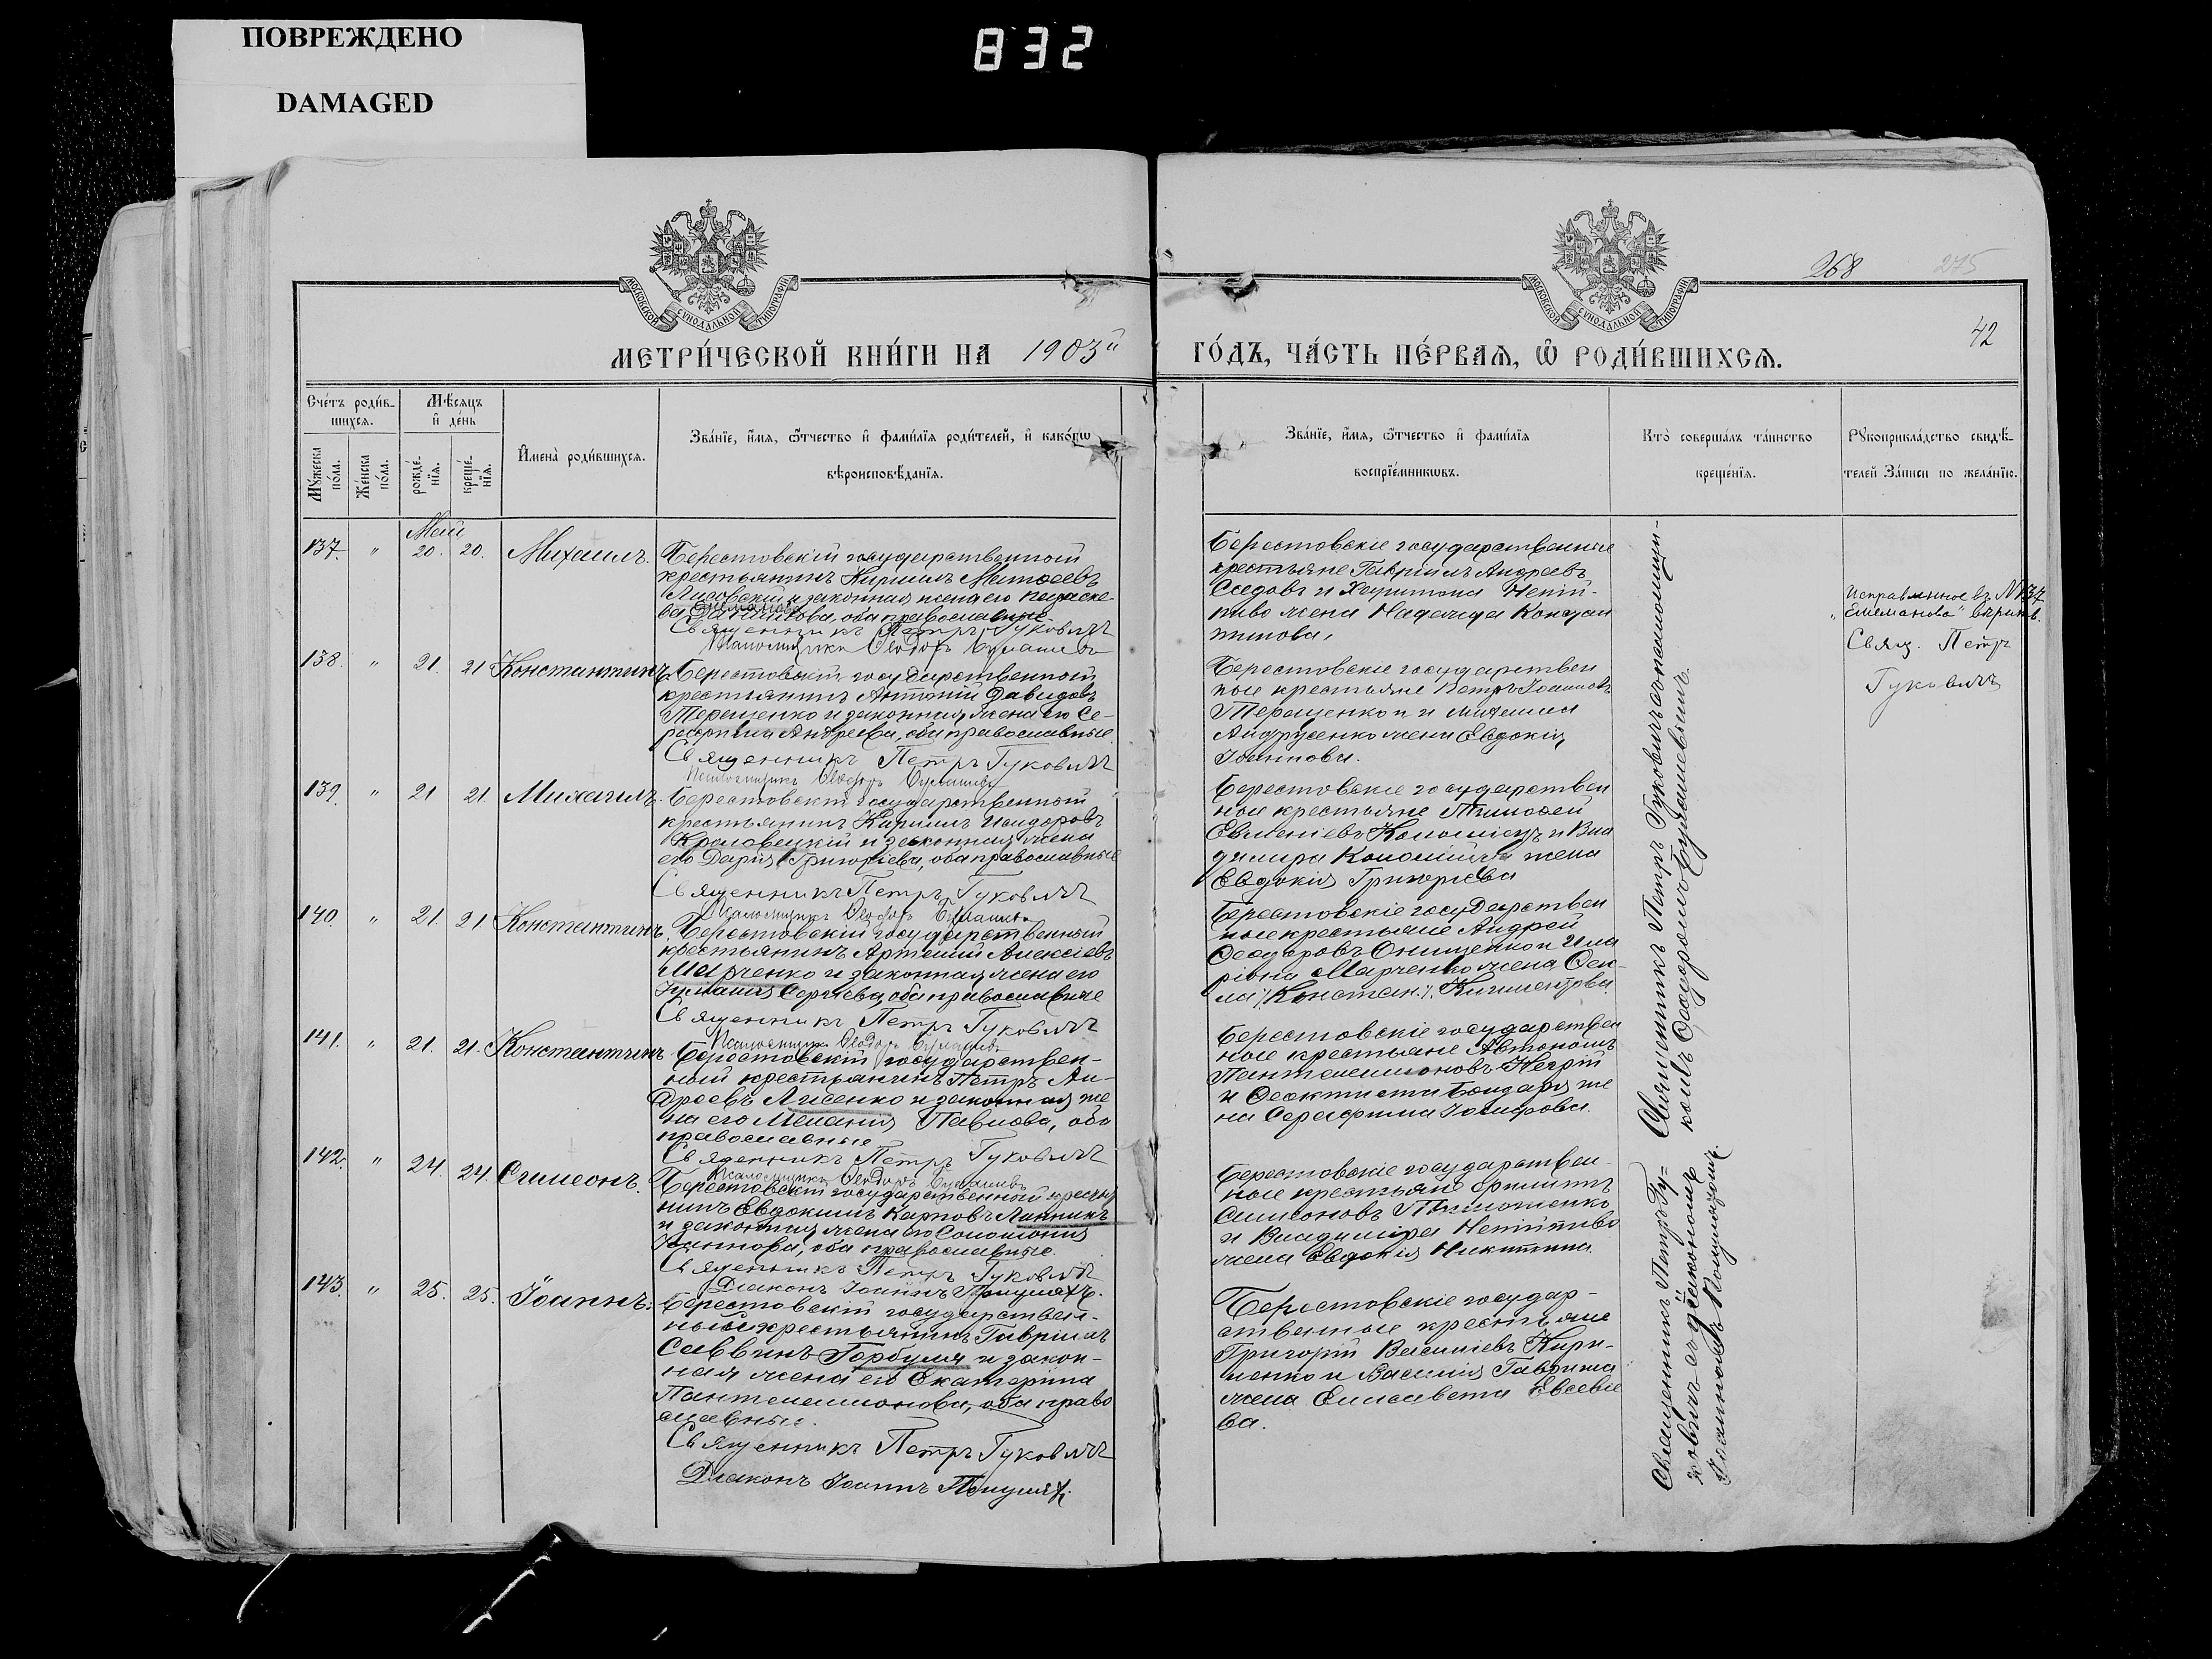 ПОВРЕЖДЕНО
DAMAGED
832
268
275
42
МОСКОВСКОЙ СѴНОДАЛЬНОЙ ТИПОГРАФІИ
МОСКОВСКОЙ СѴНОДАЛЬНОЙ ТИПОГРАФІИ
МЕТРИ́ЧЕСКОЙ КНИ́ГИ НА 1903й
ГО́ДЪ, ЧА́СТЬ ПЕ́РВАѦ, Ѿ РОДИ́ВШИХСѦ.
Счётъ роди́вшихсѧ.
Мꙋ́жеска по́ла.
Же́нска по́ла.
Мѣ́сѧцъ и҆ де́нь
рожде́нїѧ.
креще́нїѧ.
И҆мена̀ роди́вшихсѧ.
Зва́нїе, и҆́мѧ, ѻ҆́тчество и҆ фами́лїѧ роди́телей, и҆ како́гѡ
вѣроисповѣ́данїѧ.
Зва́нїе, и҆́мѧ, ѻ҆́тчество и҆ фами́лїѧ
воспрїе́мникѡвъ.
Кто̀ соверша́лъ та́инство
креще́нїѧ.
Рꙋкоприкла́дство свидѣ́-
телей За́писи по жела́нїю.
Май
137. " 20. 20. Михаилъ.
Берестовскій государственный
крестьянинъ Кириллъ Матѳеевъ
Лисовскій и законная жена его Параске-
ва оба православные
Священникъ Петръ Гуковичъ
Псаломщикъ Ѳеодоръ
Берестовскіе государственные
крестьяне Гавріилъ Андреевъ
Седовъ и Харитона Непій-
пиво жена Надежда Констан
тинова.
Исправленное въ №137
„Емеліанова" вѣрить.
Свящ. Петръ
Гуковичъ
138. " 21. 21 Константинъ
Берестовскій государственный
крестьянинъ Антоній Давидовъ
Терещенко и законная жена его Се-
рафима Андреева, оба православные
Священникъ Петръ Гуковичъ
Псаломщикъ Ѳеодоръ
Берестовскіе государствен
ные крестьяне Петръ Іоанновъ
Терещенко и Михаила
Андрусенко жена Евдокія
Іоаннова.
139. " 21 21. Михаилъ.
Берестовскій государственный
крестьянинъ Кириллъ Исидоровъ
Кролевецкій и законная жена
его Дарія Григоріева, оба православные
Священникъ Петръ Гуковичъ
Псаломщикъ Ѳеодоръ
Берестовскіе государствен
ные крестьяне Тимоѳей
Евменіевъ Коломіецъ и Вла
диміра Коломійца жена
Евдокія Григоріева
140. " 21. 21. Константинъ.
Берестовскій государственный
крестьянинъ Артемій Алексіевъ
Марченко и законная жена его
Іуліанія Сергіева, оба православные
Священникъ Петръ Гуковичъ
Псаломщикъ Ѳеодоръ
Берестовскіе государствен
ные крестьяне Андрей
Ѳеодоровъ Онищенко и Ила
ріона Марченко жена Ѳек-
ла
141. " 21. 21. Константинъ
Берестовскій государствен-
ный крестьянинъ Петръ Ан-
дреевъ Лисенко и законная же
на его Меланія Павлова, оба
православные
Священникъ Петръ Гуковичъ
Псаломщикъ Ѳеодоръ
Берестовскіе государствен
ные крестьяне Автономъ
Пантелеимоновъ Кегрій
и Ѳеоктиста Бондаря же
на Серафима Іосифова.
142. " 24. 24. Симеонъ.
Берестовскій государственный крестья
нинъ Евдокимъ Карповъ Линникъ
и законная жена его Соломонія
Іоаннова, оба православные.
Священникъ Петръ Гуковичъ
Діаконъ Іоаннъ
Берестовскіе государствен
ные крестьяне Филиппъ
Симеоновъ Тимошенко
и Владиміра Непійпиво
жена Евдокія Никитина.
143. " 25. 25. Іоаннъ.
Берестовскій государствен-
ный крестьянинъ Гавріилъ
Саввинъ Горбуля и закон-
ная жена его Екатерина
Пантелеимонова, оба право
славные.
Священникъ Петръ Гуковичъ
Діаконъ Іоаннъ
Берестовскіе государ-
ственные крестьяне
Григорій Василіевъ Кири-
ленко и Василія Гавриша
жена Елисавета Евсевіе
ва.
Священникъ Петръ Гуковичъ съ псаломщи-
комъ Ѳеодоромъ
Священникъ Петръ Гу-
ковичъ съ діакономъ
Іоанномъ